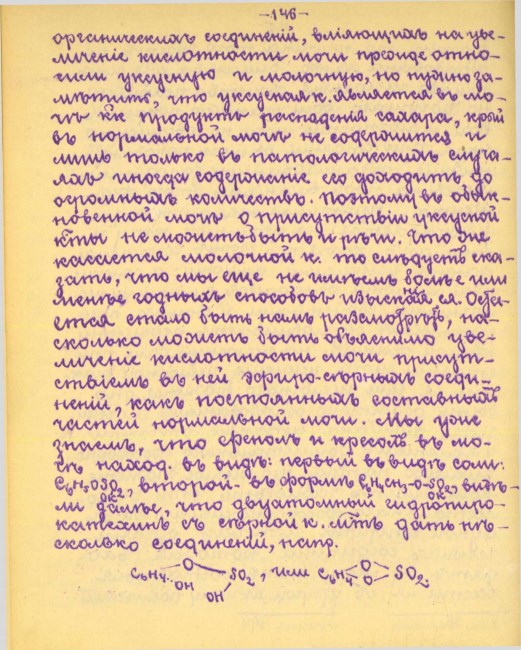 -146-
органическихъ соединеній, вліяющихъ на уве-
личеніе кислотности мочи прежде отно-
сили уксусную и молочную, но нужно за-
мѣтить, что уксусная к. является въ мо-
чѣ к'к продуктъ распаденія сахара, к'рый
въ нормальной мочѣ не содержится и
лишь только въ патологическихъ случа-
яхъ иногда содержаніе его доходитъ до
огромныхъ количествъ. Поэтому въ обык-
новенной мочѣ о присутствіи уксусной
к'ты не можетъ быть и рѣчи. Что же
касается молочной к. то слѣдуетъ ска-
зать, что мы еще не имѣемъ болѣе или
менѣе годныхъ способовъ изысканія ея. Оста-
ется стало быть намъ разсмотрѣть, на-
сколько можетъ быть объяснимо уве-
личеніе кислотности мочи присут-
ствіемъ въ ней эфиро-сѣрныхъ соеди-
неній, какъ постоянныхъ составныхъ
частей нормальной мочи. Мы уже
знаемъ, что фенолъ и крезолъ въ мо-
чѣ наход. въ видѣ: первый въ видѣ соли:
C6H5OSO2, второй - въ формѣ C6H4CH3-O-SO2, видѣ-
OK OK
ли далѣе, что двуатомный гидропиро-
катехинъ съ сѣрной к. м'тъ дать нѣ-
сколько соединеній, напр.
C6H4 O SO2, или C6H4 O O SO2.
OH OH